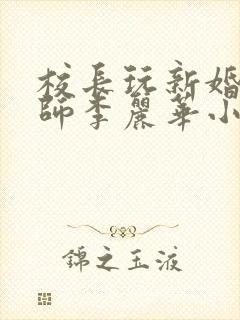 校長玩新婚
師李麗華小
錦之玉液